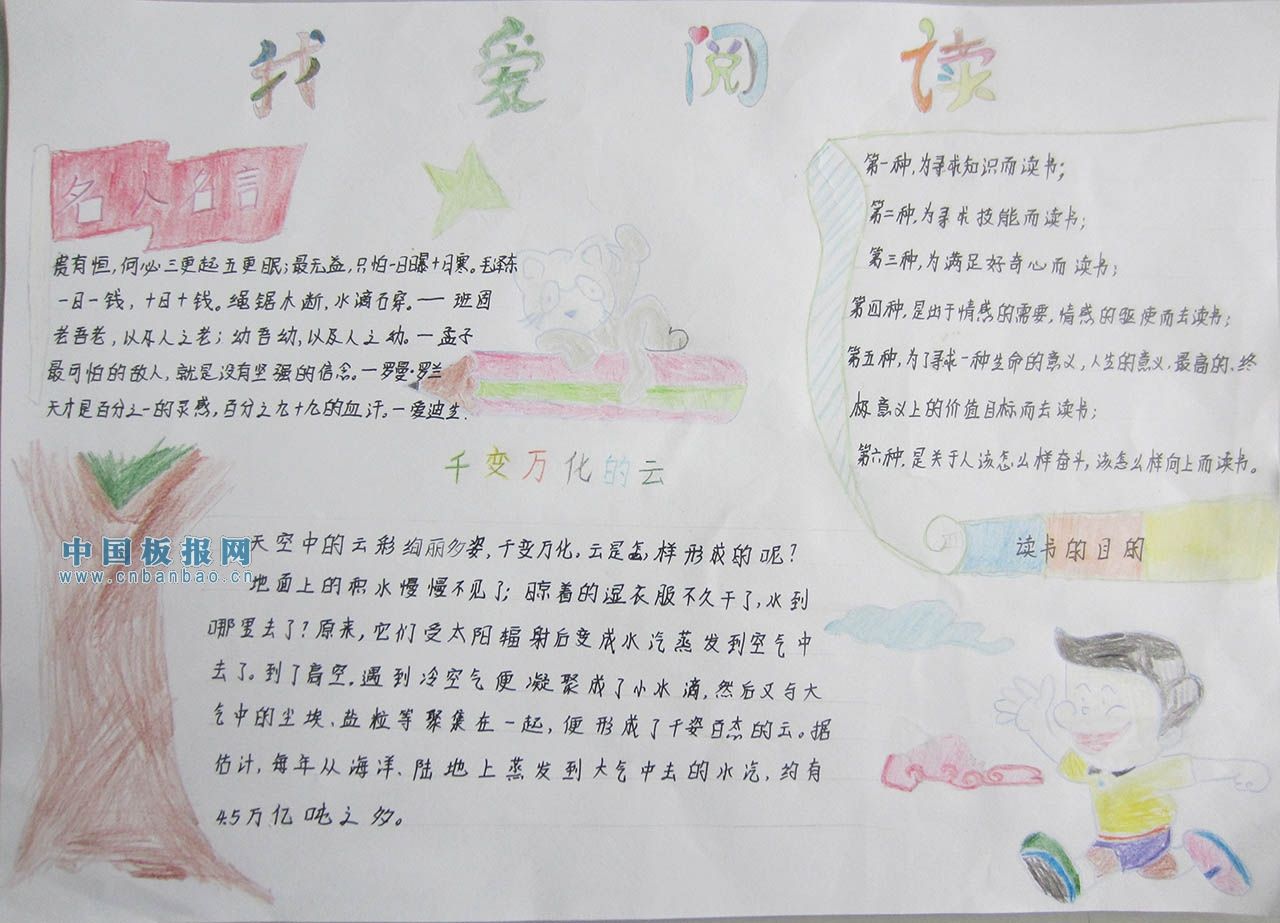 我爱阅读
名人名言
贵有恒,何必三更起五更眠;最无益,只怕一日曝十日寒。毛泽东
一日一钱,十日十钱。绳锯木断,水滴石穿。——班固
老吾老,以及人之老;幼吾幼,以及人之幼。—孟子
最可怕的敌人,就是没有坚强的信念。—罗曼·罗兰
天才是百分之一的灵感,百分之九十九的血汗。—爱迪生.
第一种,为寻求知识而读书;
第二种,为寻求技能而读书;
第三种,为满足好奇心而读书;
第四种,是出于情感的需要,情感的驱使而去读书;
第五种,为了寻求一种生命的意义,人生的意义,最高的、终
极意义上的价值目标而去读书;
第六种,是关于人该怎么样奋斗,该怎么样向上而读书。
读书的目的
千变万化的云
天空中的云彩绚丽多姿,千变万化。云是怎样形成的呢?
地面上的积水慢慢不见了;晾着的湿衣服不久干了,水到
哪里去了?原来,它们受太阳辐射后变成水汽蒸发到空气中
去了。到了高空,遇到冷空气便凝聚成了小水滴,然后又与大
气中的尘埃、盐粒等聚集在一起,便形成了千姿百态的云。据
估计,每年从海洋、陆地上蒸发到大气中去的水汽,约有
4.5万亿吨之多。
中国板报网
www.cnbanbao.cn